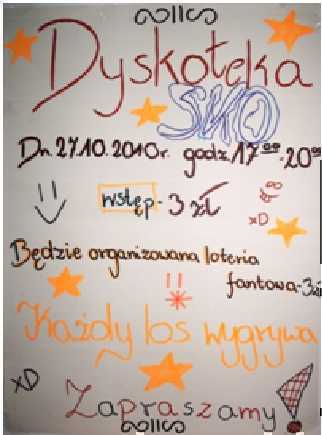 Dyskoteka
SKO
Dn. 27.10.2010r. godz. 17⁰⁰-20⁰⁰
wstęp - 3 zł
xD
Będzie organizowana loteria
fantowa - 3zł
!!
Każdy los wygrywa
xD
Zapraszamy!